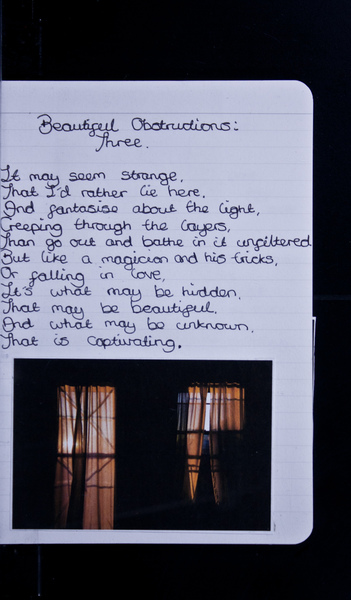 Beautiful Obstructions:
Three.
It may seem strange,
That I'd rather lie here,
And fantasise about the light,
Creeping through the layers,
Than go out and bathe in it unfiltered
But like a magician and his tricks,
Or falling in love,
It's what may be hidden,
That may be beautiful.
And what may be unknown,
That is captivating.